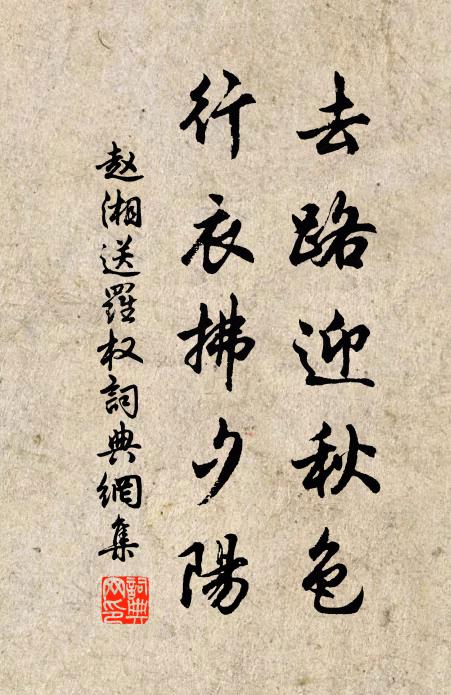 去路迎秋色
行衣拂夕陽
赵湘送羅权詞典網集
詞典网印